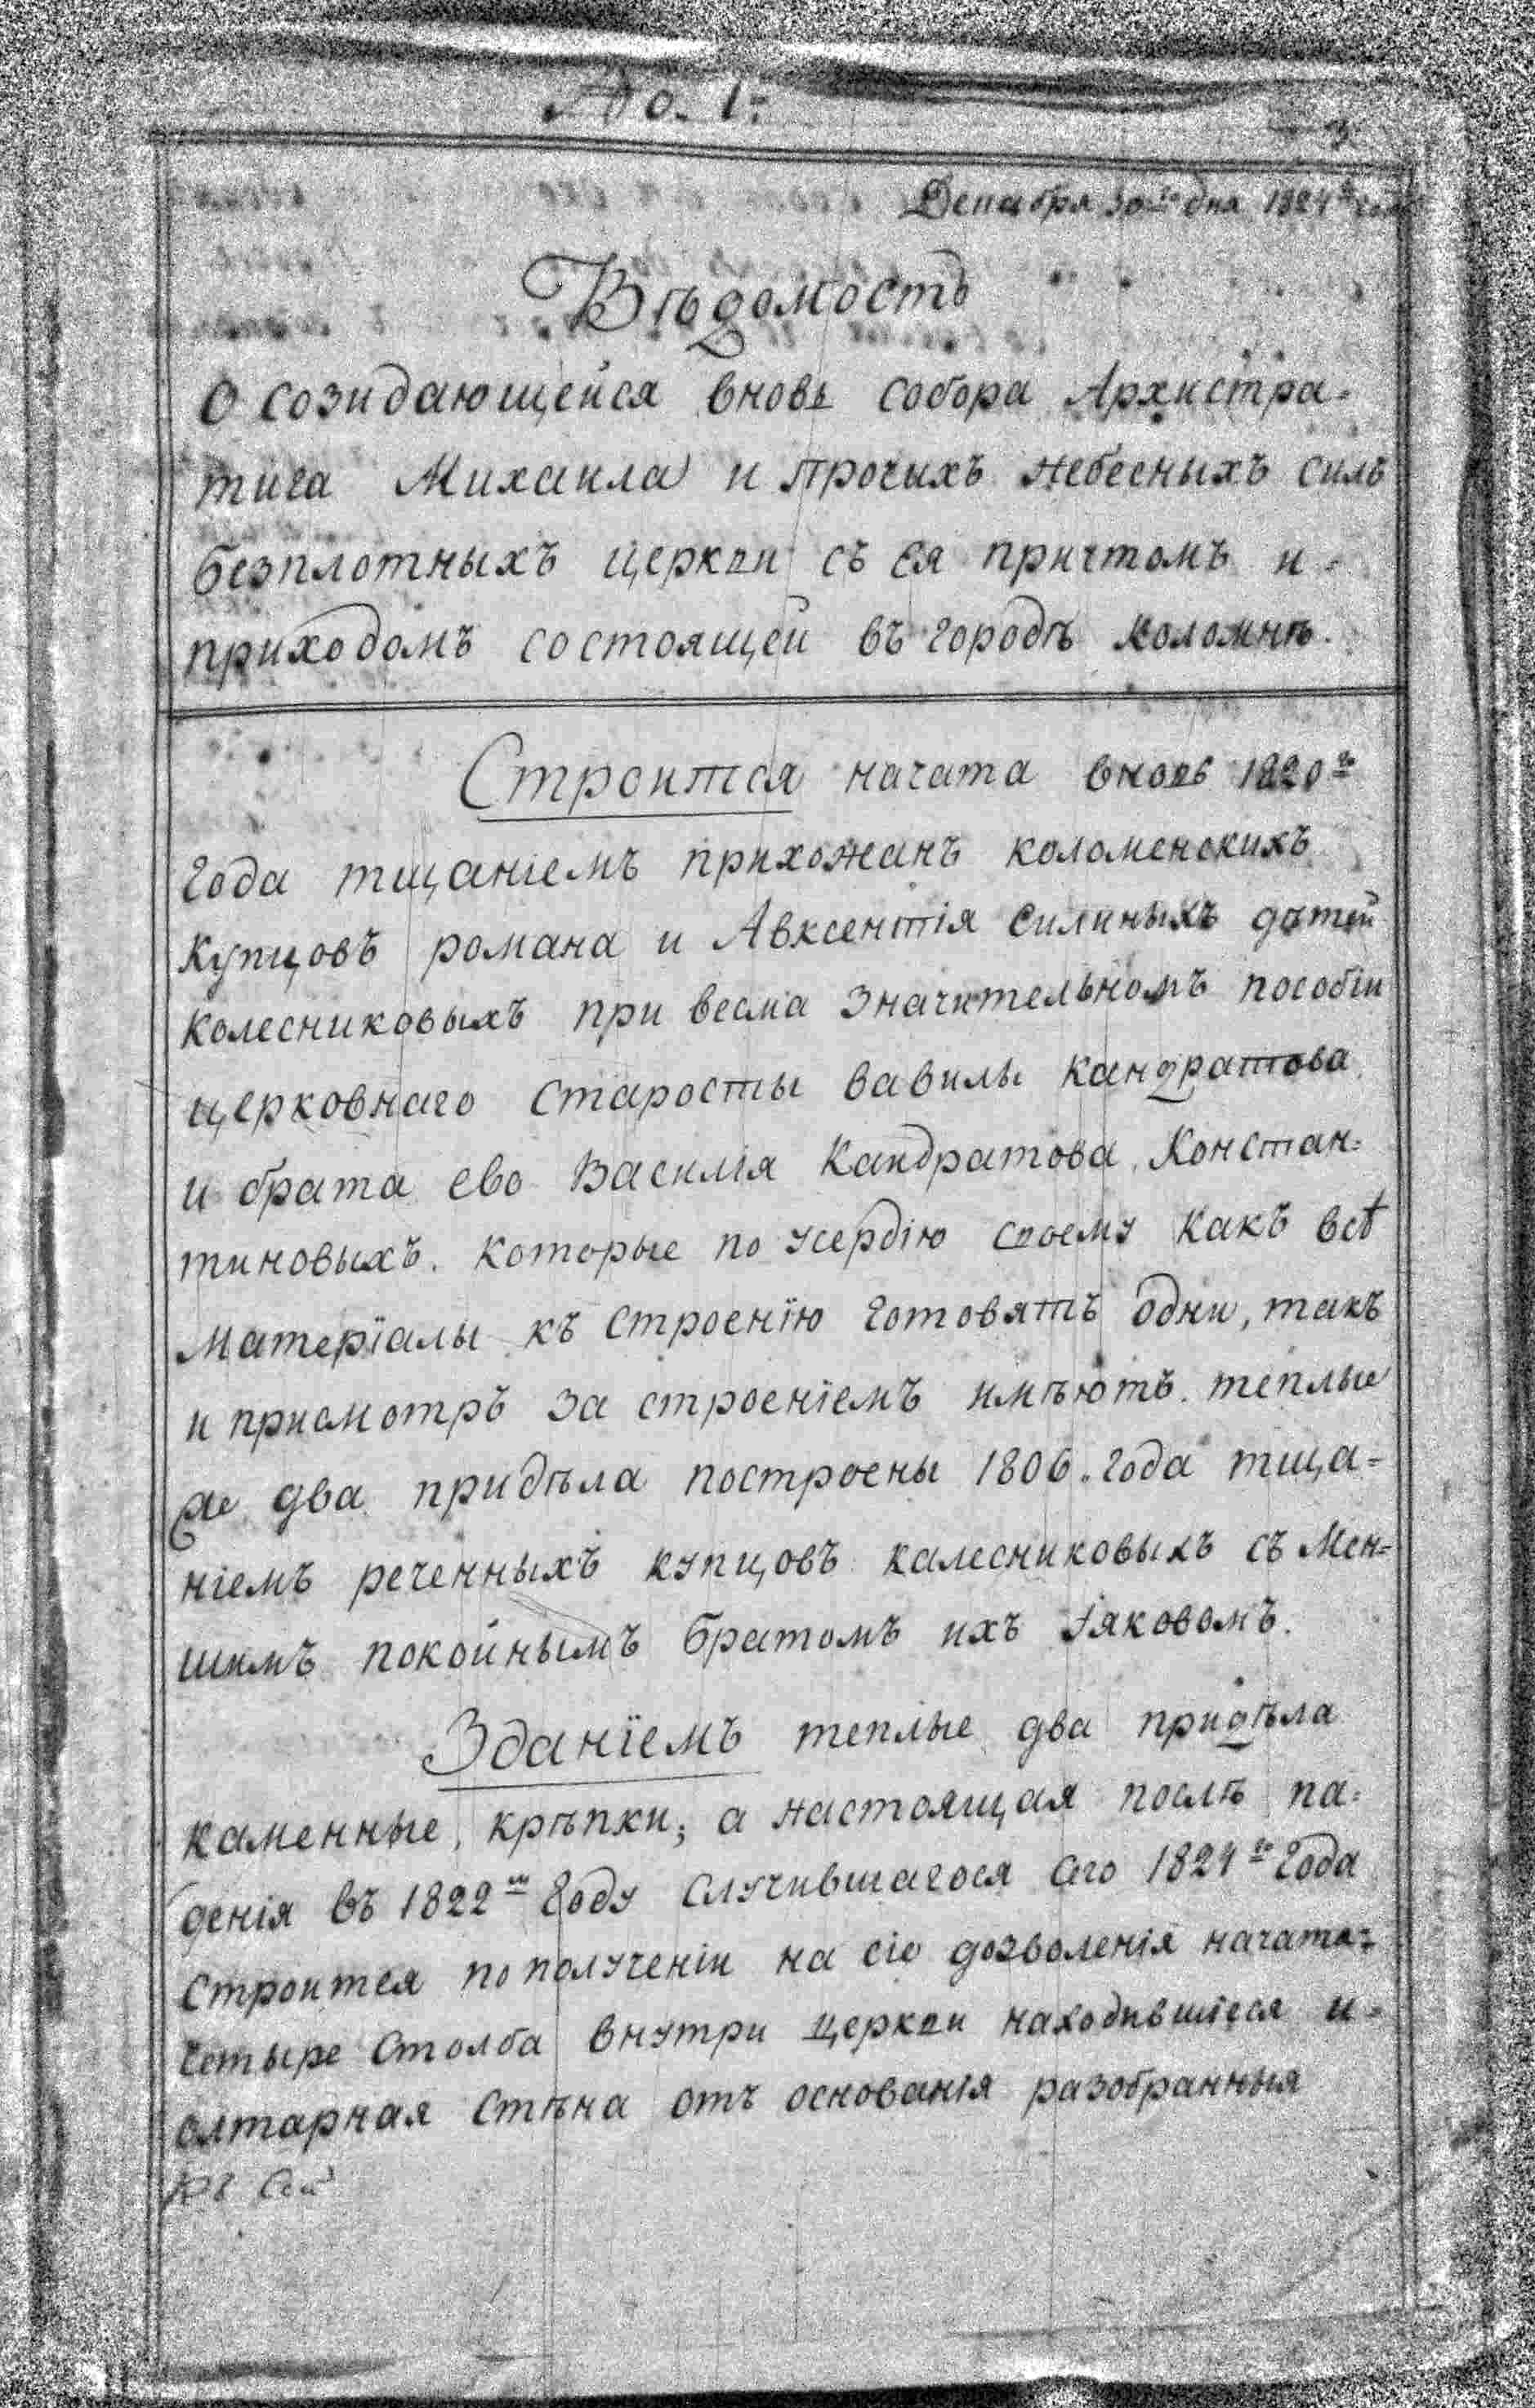 №. 1:
3
Декабря 30го дня 1824го года
Вѣдомость
О созидающейся вновь собора Архистра-
тига Михаила и прочыхъ небесныхъ силъ
безплотныхъ церкви съ ея причтомъ и-
приходомъ состоящей въ городѣ коломнѣ.
Строится начата вновь 1820го
года тщаніемъ прихожанъ коломенскихъ
купцовъ романа и Авксентія Силиныхъ дѣтей
колесниковыхъ при весма значительномъ пособіи
церковнаго старосты вавилы кандратова
и брата ево Василія Кандратова Констан-
тиновыхъ. которые по усердію своему какъ всѣ
матеріалы къ строенію готовятъ одни, такъ
и присмотръ за строеніемъ имѣютъ. теплые
же два придѣла построены 1806. года тща-
ніемъ реченныхъ купцовъ калесниковыхъ съ мен-
шимъ покойнымъ братомъ ихъ Іяковомъ.
Зданїемъ теплые два придѣла
каменные, крѣпки; а настоящая послѣ па-
денія въ 1822м году случившагося сего 1824го года
строится по полученіи на сіе дозволенія начата:
четыре столба внутри церкви находившіеся и-
олтарная стѣна отъ основанія разобранныя